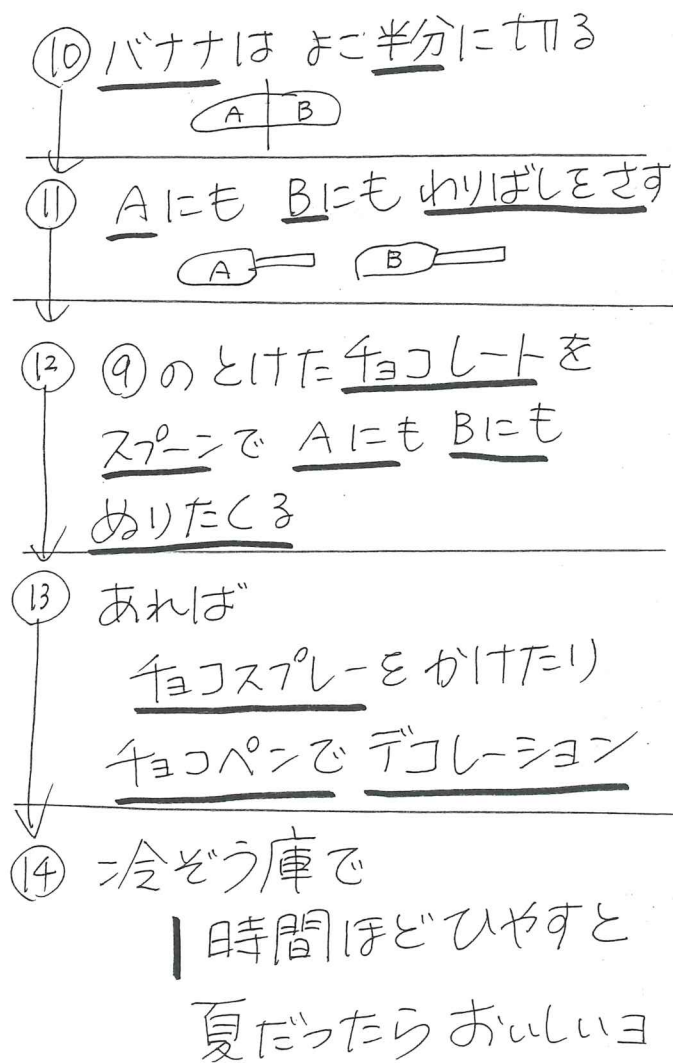 ⑩ バナナは よこ半分に切る
A B
⑪ Aにも Bにも わりばしをさす
A B
⑫ ⑨のとけたチョコレートを
スプーンで Aにも Bにも
ぬりたくる
⑬ あれば
チョコスプレーをかけたり
チョコペンで デコレーション
⑭ 冷ぞう庫で
1時間ほどひやすと
夏だったらおいしいヨ